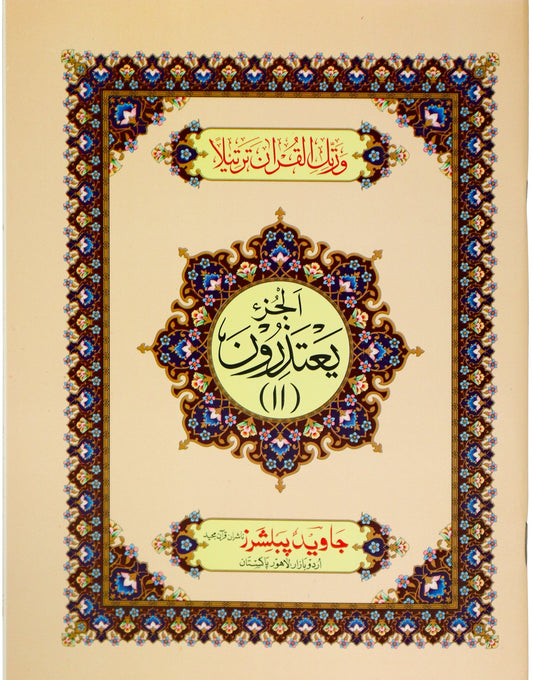 وَرَتِّلِ الْقُرْاٰنَ تَرْتِيْلًا
اَلْجُزْءُ
يَعْتَذِرُوْنَ
(۱۱)
جاوید پبلشرز ناشران قرآن مجید
اردو بازار لاهور پاکستان